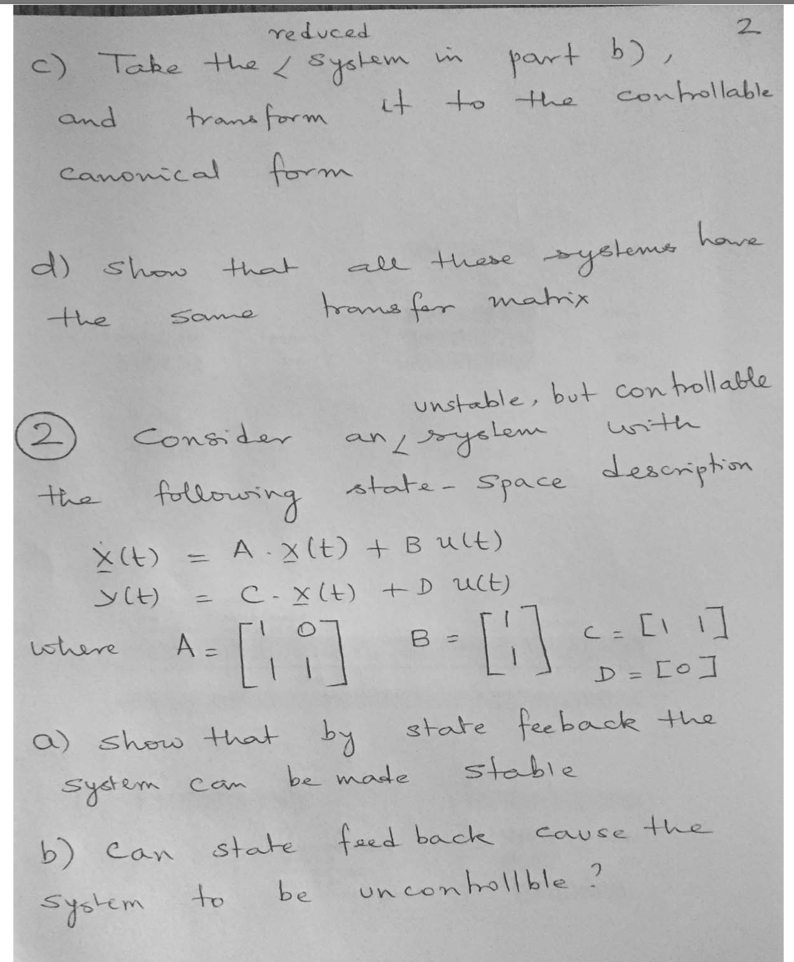 2
reduced
c) Take the < system in part b),
and transform it to the controllable
canonical form
d) show that all these systems have
the same transfer matrix
unstable, but controllable
2 Consider an < system with
the following state-space description
ẋ(t) = A · x(t) + B u(t)
y(t) = C · x(t) + D u(t)
where A = [1 0; 1 1] B = [1; 1] C = [1 1]
D = [0]
a) show that by state feeback the
system can be made stable
b) can state feed back cause the
system to be uncontrollble ?